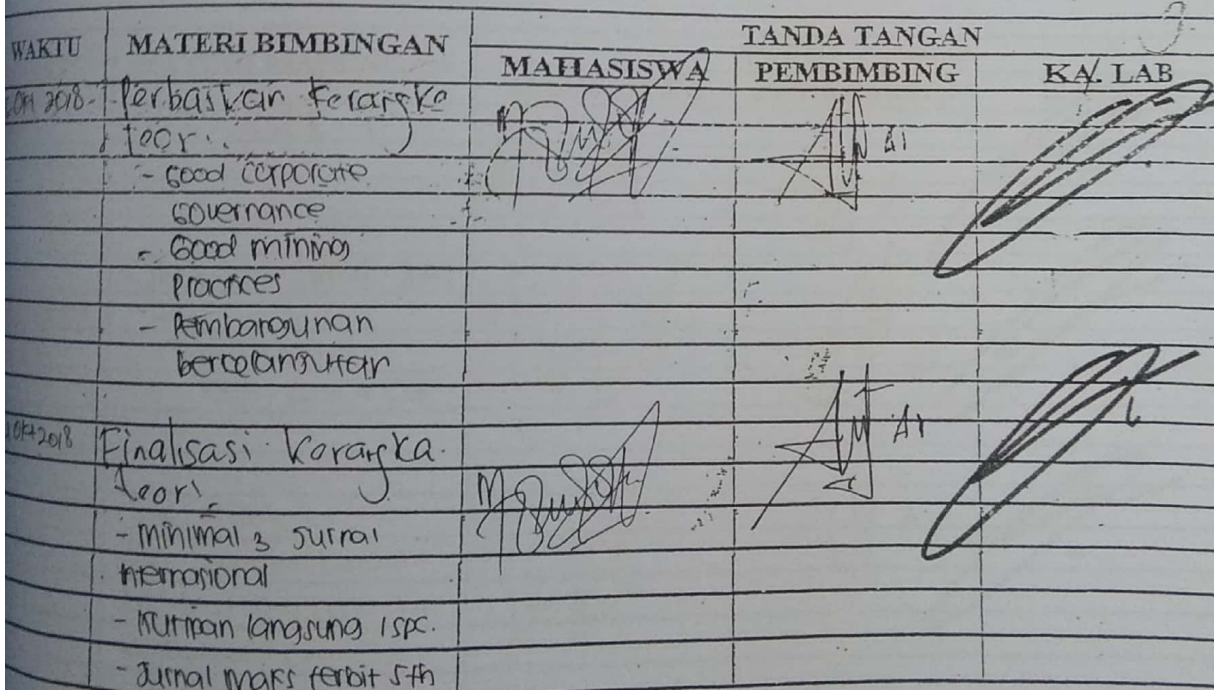 WAKTU MATERI BIMBINGAN TANDA TANGAN
MAHASISWA PEMBIMBING KA. LAB
2018 - Perbaikan kerangka
teori.
- Good corporate
Governance
- Good mining
Practices
- Pembangunan
berkelanjutan
Okt 2018 Finalisasi kerangka
teori.
- minimal 3 jurnal
internasional
- kutipan langsung 1 spc.
- Jurnal maks terbit 5 th